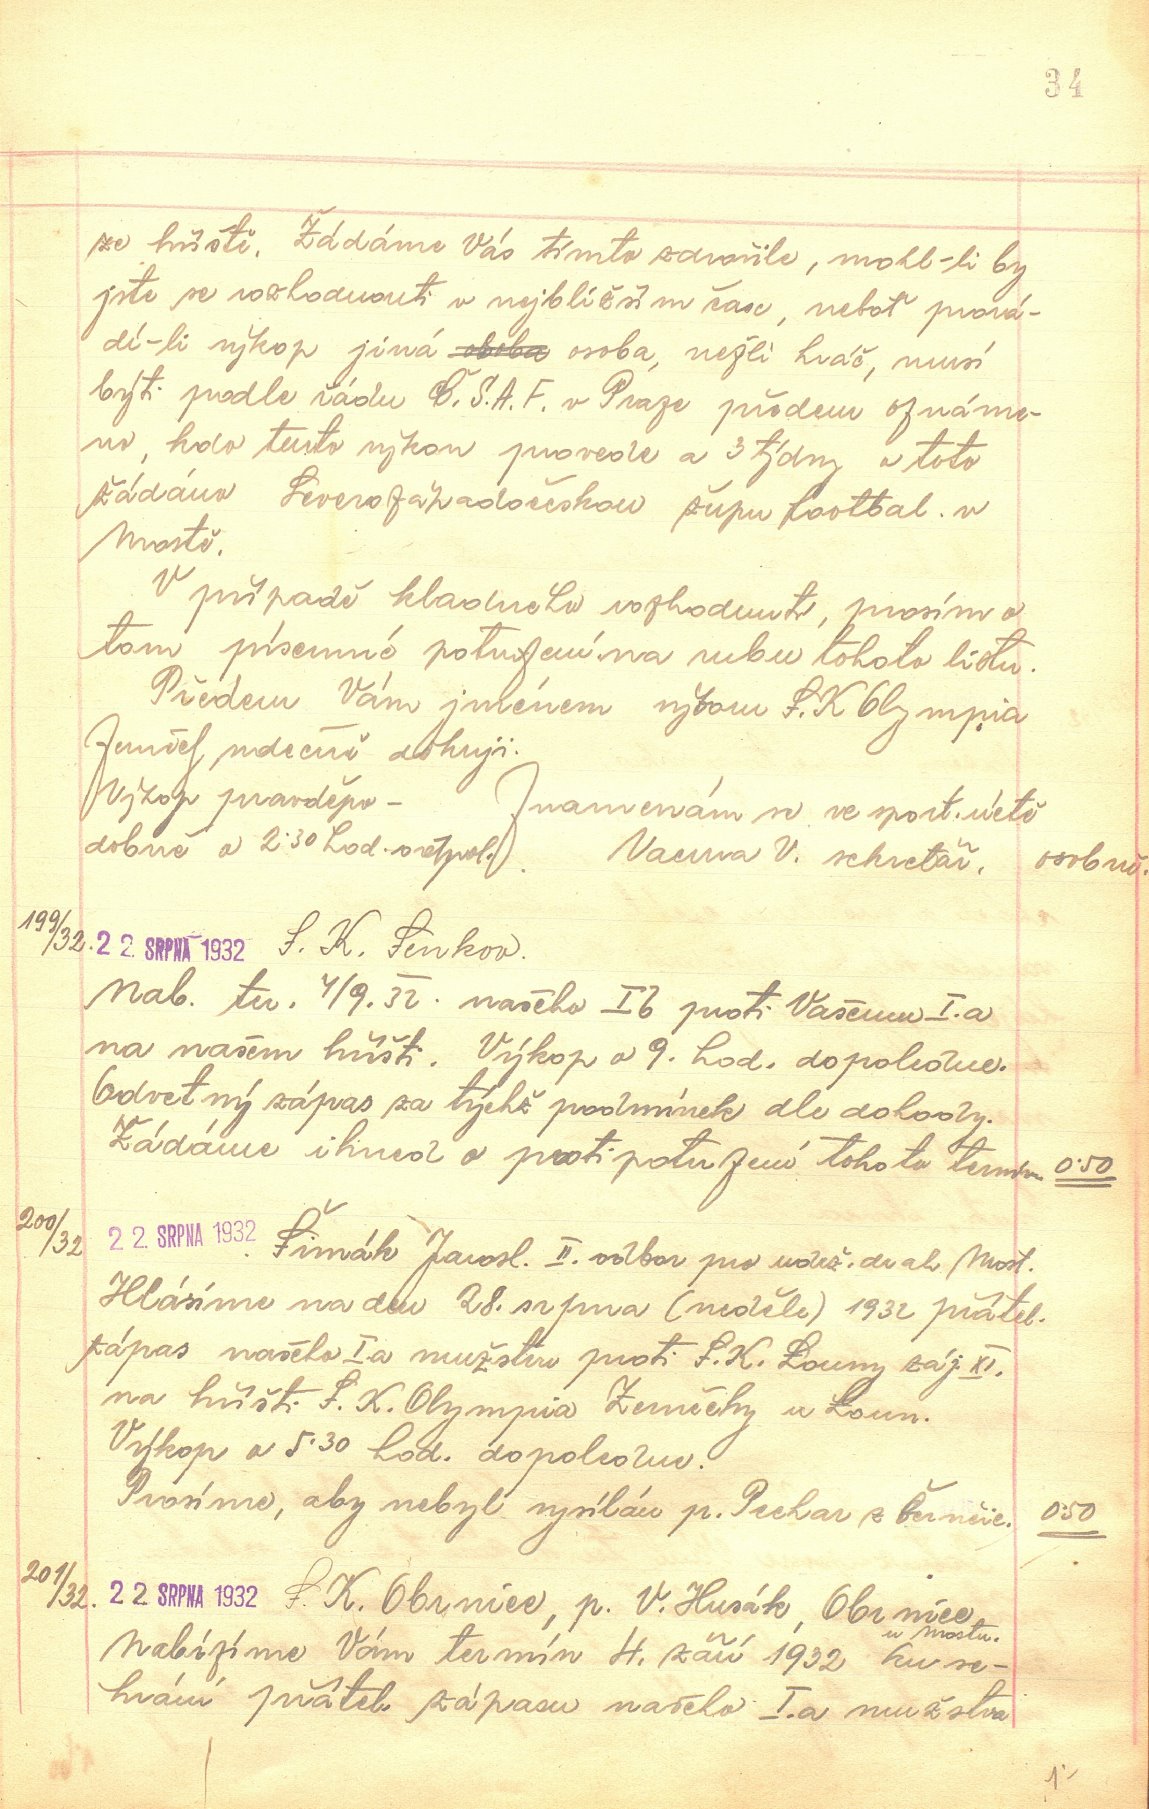 34
ze hříště. Žádáme Vás tímto zdvořile, mohl-li by
jste se rozhodnouti v nejbližším čase, neboť prová-
dí-li výkop jiná osoba, nežli hráč, musí
býti podle řádu Č.S.A.F. v Praze předem oznáme-
no, kdo tento výkon provede a 3 týdny o toto
žádáno Severozápadočeskou župu footbal. v
Mostě.
V případě kladného rozhodnutí, prosím o
tom písemné potvrzení na rubu tohoto listu.
Předem Vám jménem výboru S.K Olympia
Zeměch srdečně děkuji.
Výkop pravděpo-
dobně o 2·30 hod. odpol.
Znamenám se ve sport. úctě
Vacura V. sekretář. osobně.
199/32. 22 SRPNA 1932 S. K. Lenkov.
Nab. ter. 4/9. 32. našeho I b proti Vašemu I.a
na našem hřišti. Výkop o 9. hod. dopoledne.
Odvetný zápas za týchž podmínek dle dohody.
Žádáme ihned o protipotvrzení tohoto termínu 0·50
200/32 22 SRPNA 1932 Šimák Jarosl. II. odbor pro udrž. drah Most.
Hlásíme na den 28. srpna (neděle) 1932 přátel.
zápas našeho I.a mužstva proti S.K. Louny záj. XI.
na hřišti S. K. Olympia Zeměchy u Loun.
Výkop o 5·30 hod. dopoledne.
Prosíme, aby nebyl vysílán p. Pechar z Černčic. 0·50
201/32. 22 SRPNA 1932 S. K. Obrnice, p. V. Husák, Obrnice
u Mostu.
Nabízíme Vám termín 4. září 1932 ku se-
hrání přátel. zápasu našeho I.a mužstva